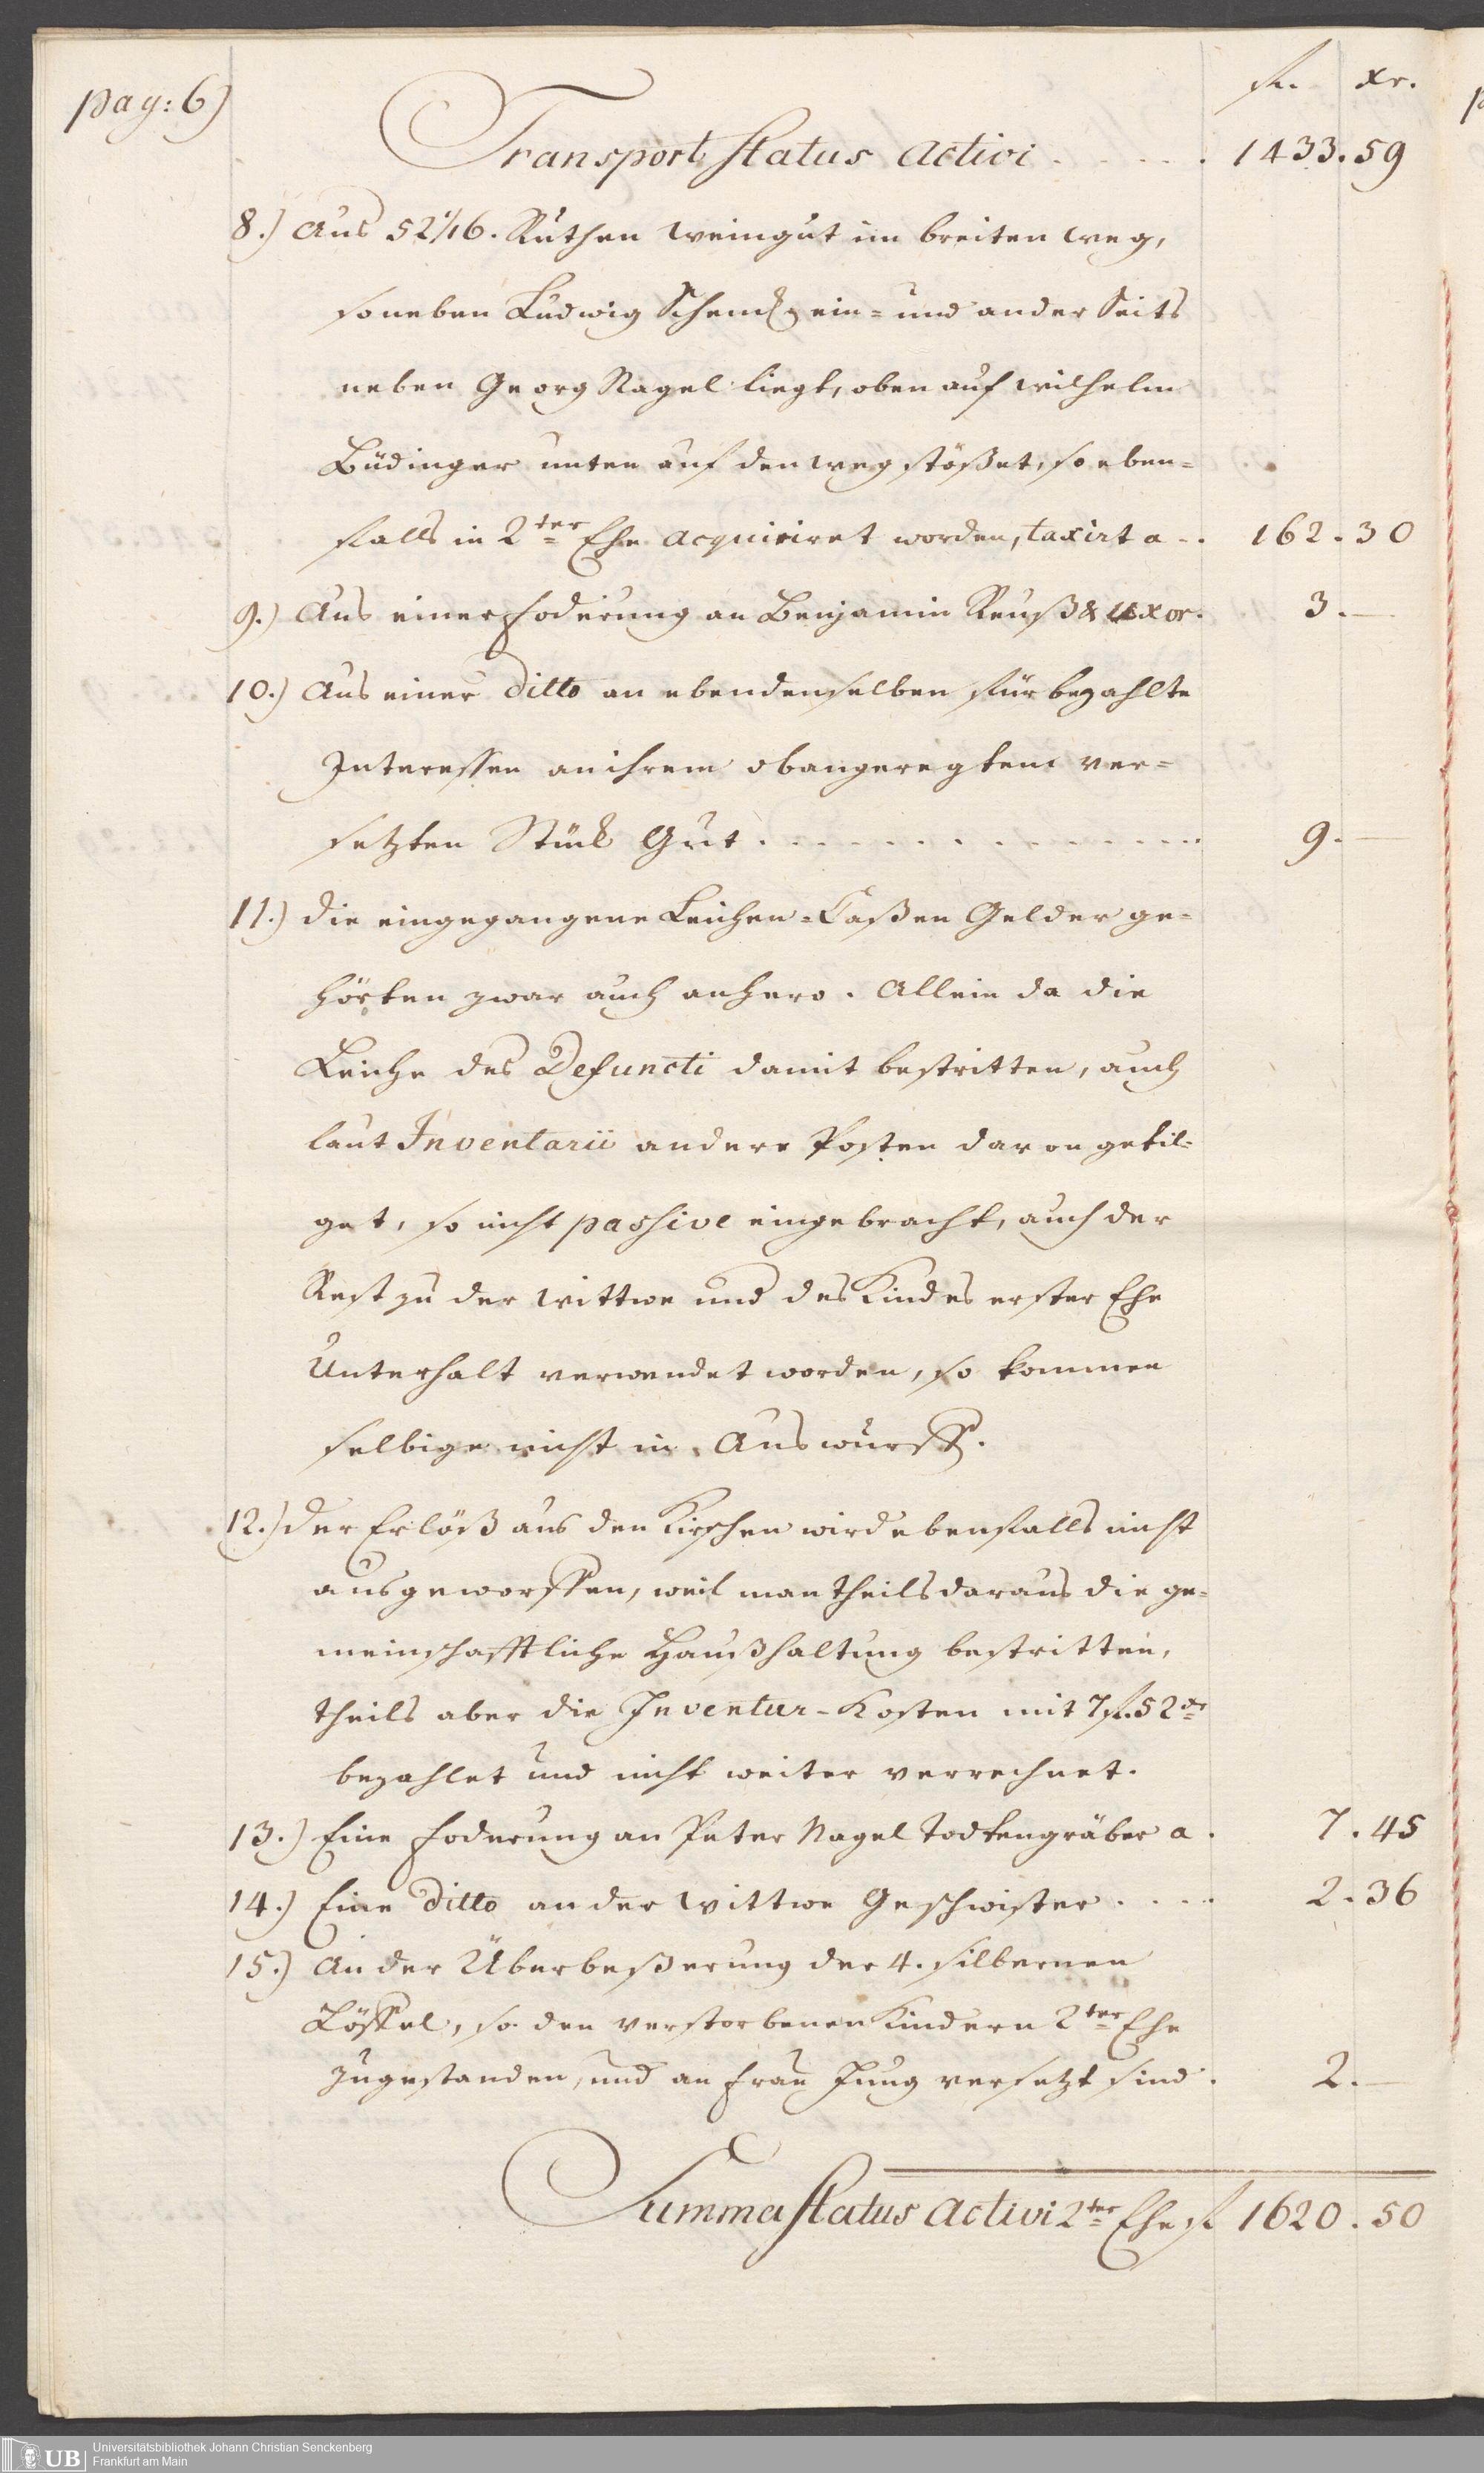 pag: 6)
fl. xr.
Transport Status Activi . . . . . 1433. 59
8.) Aus 52 1/16. Ruthen Weingut im breiten Weg,
so neben Ludwig Schenck ein= und ander Seits
neben Georg Nagel liegt, oben auf Wilhelm
Büdinger unten auf den Weg stößet, so eben=
falls in 2ter Ehe acquiriret worden, taxirt a . . 162. 30
9.) Aus einer Foderung an Benjamin Reuß & uxor. 3. —
10.) Aus einer ditto an ebendenselben für bezahlte
Interessen an ihrem obangeregtem ver=
setzten Stück Gut . . . . . . . . . . . . 9. —
11.) die eingegangene Leichen=Caßen Gelder ge=
hörten zwar auch anhero. Allein da die
Leiche des Defuncti damit bestritten, auch
laut Inventarii andere Posten davon getil=
get, so nicht passive eingebracht, auch der
Rest zu der Wittwe und des Kindes erster Ehe
Unterhalt verwendet worden, so kommen
selbige nicht in Auswurff.
12.) der Erlöß aus den Kirschen wird ebenfalls nicht
ausgeworffen, weil man theils daraus die ge=
meinschafftliche Haußhaltung bestritten,
theils aber die Inventur-Kosten mit 7 fl. 52 xr
bezahlet und nicht weiter verrechnet.
13.) Eine Foderung an Peter Nagel Todtengräber a . 7. 45
14.) Eine ditto an der Wittwe Geschwister . . . . 2. 36
15.) An der Überbeßerung der 4. silbernen
Löffel, so den verstorbenen Kindern 2ter Ehe
zugestanden, und an Frau Jung versetzt sind . 2. —
Summa Status Activi 2ter Ehe fl 1620. 50
UB
Universitätsbibliothek Johann Christian Senckenberg
Frankfurt am Main